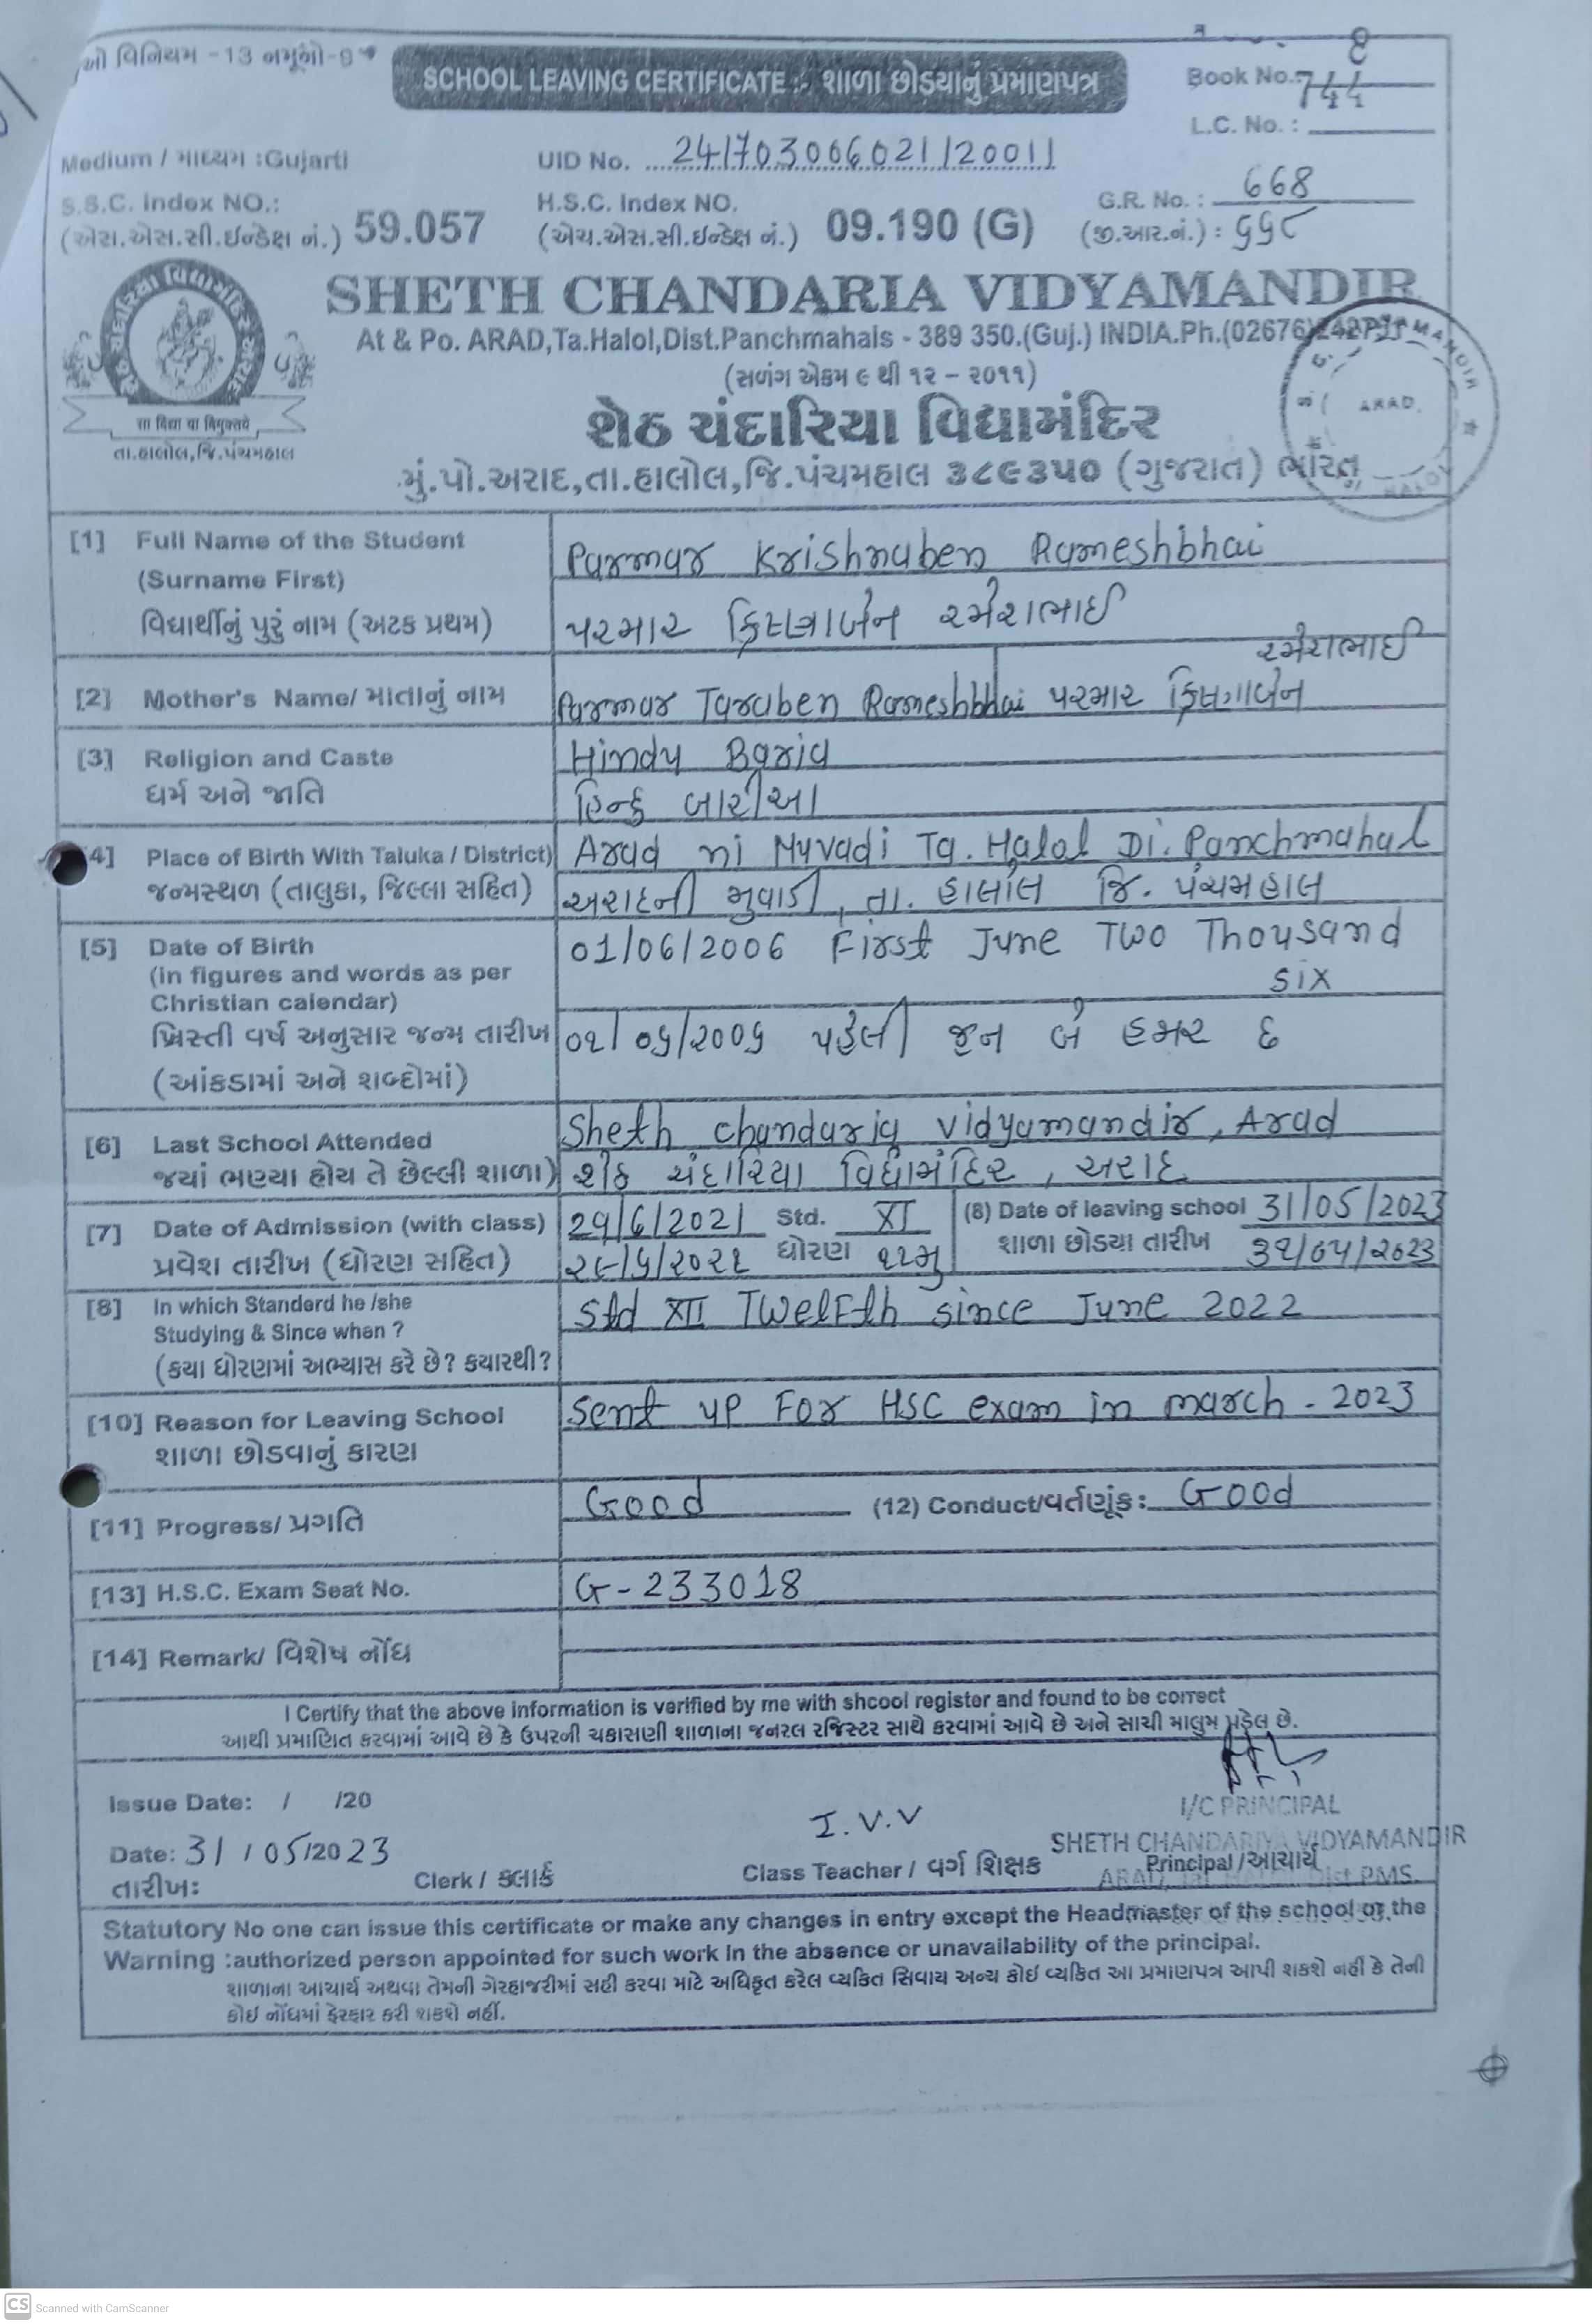 વિનિયમ - 13 નમૂનો-9
SCHOOL LEAVING CERTIFICATE :- શાળા છોડયાનું પ્રમાણપત્ર
Book No.: 8
744
L.C. No. :
Medium / માધ્યમ :Gujarti
UID No. 24170300602112001
S.S.C. Index NO.:
(એસ.એસ.સી.ઈન્ડેક્ષ નં.) 59.057
H.S.C. Index NO.
(એચ.એસ.સી.ઈન્ડેક્ષ નં.) 09.190 (G)
G.R. No. : 668
(જી.આર.નં.) : ૬૬૮
SHETH CHANDARIA VIDYAMANDIR
At & Po. ARAD,Ta.Halol,Dist.Panchmahals - 389 350.(Guj.) INDIA.Ph.(02676)
(સળંગ એકમ ૯ થી ૧૨ - ૨૦૧૧)
શેઠ ચંદારિયા વિદ્યામંદિર
મું.પો.અરાદ,તા.હાલોલ,જિ.પંચમહાલ ૩૮૯૩૫૦ (ગુજરાત) ભારત
सा विद्या या विमुक्तये
તા.હાલોલ,જિ.પંચમહાલ
ARAD.
[1] Full Name of the Student
(Surname First)
વિદ્યાર્થીનું પુરું નામ (અટક પ્રથમ)
Parmar Krishnaben Rameshbhai
પરમાર ક્રિષ્ણાબેન રમેશભાઈ
[2] Mother's Name/ માતાનું નામ
Parmar Taraben Rameshbhai પરમાર ક્રિષ્ણાબેન
રમેશભાઈ
[3] Religion and Caste
ધર્મ અને જાતિ
Hindu Baria
હિન્દુ બારીઆ
4] Place of Birth With Taluka / District)
જન્મસ્થળ (તાલુકા, જિલ્લા સહિત)
Arad ni Muvadi Ta. Halol Di. Panchmahal
અરાદની મુવાડી, તા. હાલોલ જિ. પંચમહાલ
[5] Date of Birth
(in figures and words as per
Christian calendar)
ખ્રિસ્તી વર્ષ અનુસાર જન્મ તારીખ
(આંકડામાં અને શબ્દોમાં)
01/06/2006 First June Two Thousand
six
૦૧/૦૬/૨૦૦૬ પહેલી જૂન બે હજાર છ
[6] Last School Attended
જયાં ભણ્યા હોય તે છેલ્લી શાળા)
Sheth chandaria vidyamandir, Arad
શેઠ ચંદારિયા વિદ્યામંદિર, અરાદ
[7] Date of Admission (with class)
પ્રવેશ તારીખ (ધોરણ સહિત)
29/6/2021 Std. XI
૨૯/૬/૨૦૨૧ ધોરણ ૧૧મુ
(8) Date of leaving school 31/05/2023
શાળા છોડયા તારીખ ૩૧/૦૫/૨૦૨૩
[8] In which Standerd he /she
Studying & Since when ?
(કયા ધોરણમાં અભ્યાસ કરે છે? કયારથી?
Std XII TwelFth since June 2022
[10] Reason for Leaving School
શાળા છોડવાનું કારણ
Sent up For HSC exam in march - 2023
[11] Progress/ પ્રગતિ
Good
(12) Conduct/વર્તણૂંક: Good
[13] H.S.C. Exam Seat No.
G-233018
[14] Remark/ વિશેષ નોંધ
I Certify that the above information is verified by me with shcool register and found to be correct
આથી પ્રમાણિત કરવામાં આવે છે કે ઉપરની ચકાસણી શાળાના જનરલ રજિસ્ટર સાથે કરવામાં આવે છે અને સાચી માલુમ પડેલ છે.
Issue Date: / /20
Date: 31 / 05/2023
તારીખઃ
Clerk / કલાર્ક
I.V.V
Class Teacher / વર્ગ શિક્ષક
I/C PRINCIPAL
SHETH CHANDARIYA VIDYAMANDIR
Principal /આચાર્ય
Statutory No one can issue this certificate or make any changes in entry except the Headmaster of the school or the
Warning :authorized person appointed for such work in the absence or unavailability of the principal.
શાળાના આચાર્ય અથવા તેમની ગેરહાજરીમાં સહી કરવા માટે અધિકૃત કરેલ વ્યકિત સિવાય અન્ય કોઈ વ્યકિત આ પ્રમાણપત્ર આપી શકશે નહીં કે તેની
કોઈ નોંધમાં ફેરફાર કરી શકશે નહીં.
CS Scanned with CamScanner